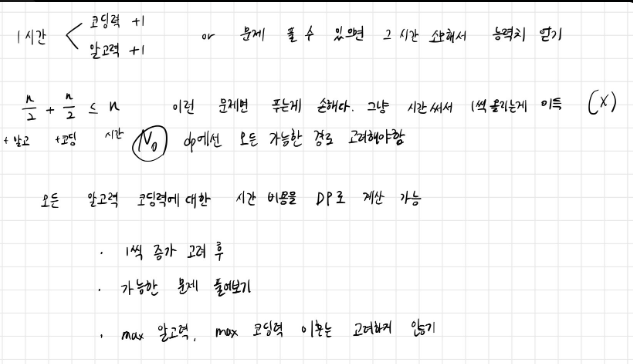 1시간 < 코딩력 +1
알고력 +1 or 문제 풀 수 있으면 그 시간 소비해서 능력치 얻기
n/2 + n/2 ≤ n 이런 문제면 푸는게 손해다. 그냥 시간써서 1씩 올리는게 이득 (X)
+알고 +코딩 시간 No dp에선 모든 가능한 경로 고려해야함
모든 알고력 코딩력에 대한 시간 비용을 DP로 계산 가능
· 1씩 증가 고려 후
· 가능한 문제 풀어보기
· max 알고력, max 코딩력 이후는 고려하지 않기